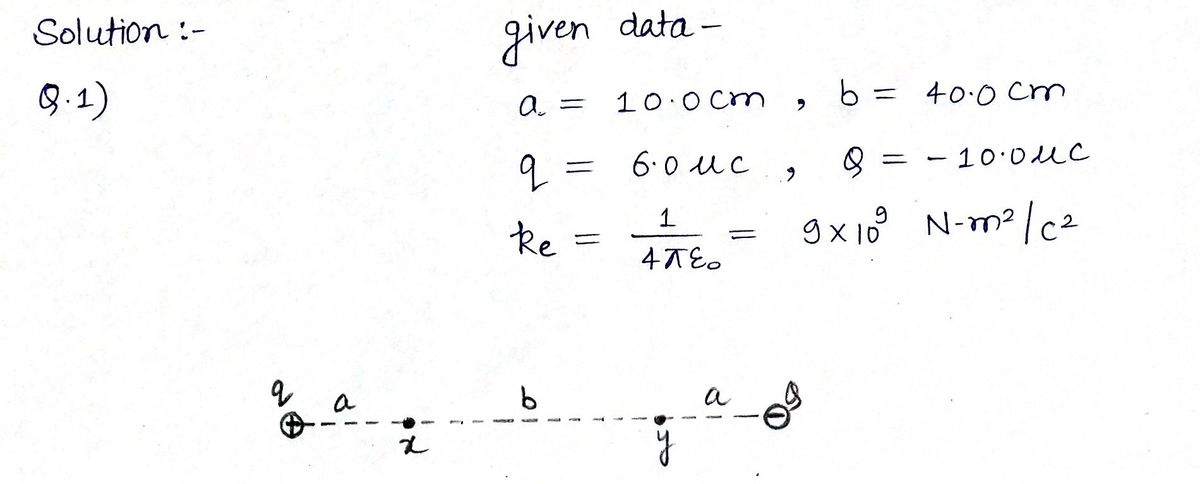 Solution :- given data -
Q.1) a = 10.0 cm , b = 40.0 cm
q = 6.0 µc , Q = - 10.0 µc
ke = 1/4πε₀ = 9 x 10⁹ N-m²/c²
q a b a Q
x y